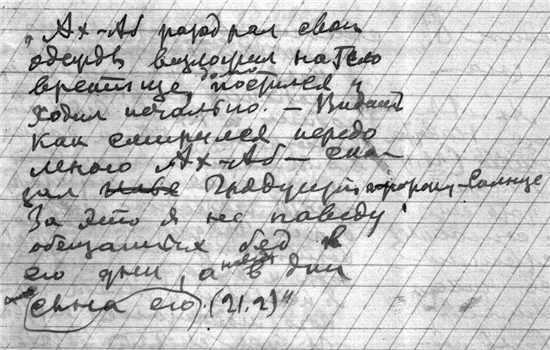 „Ах-Аб разодрал свои
одежды возложил на тело
вретище, долго постился и
ходил печально. – Видишь
как смирился передо
мною Ах-Аб – ска-
зал Грядущий пророку-Солнце
За это я не наведу
обещанных бед в
его дни, а наведу в дни
сына его. (21.2)"